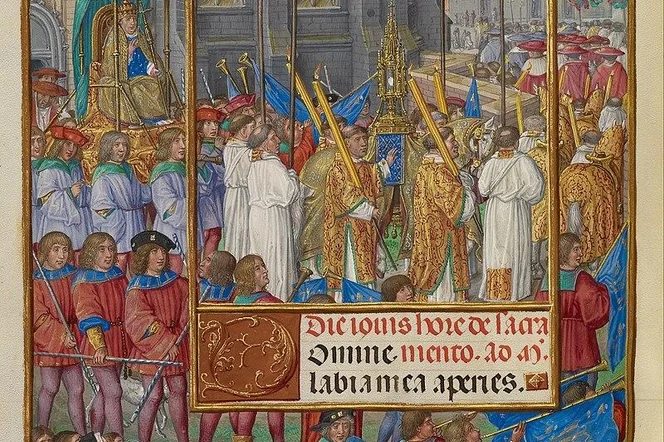 Die iouis hore de sacra
Domine. mento. ad
labia mea aperies.